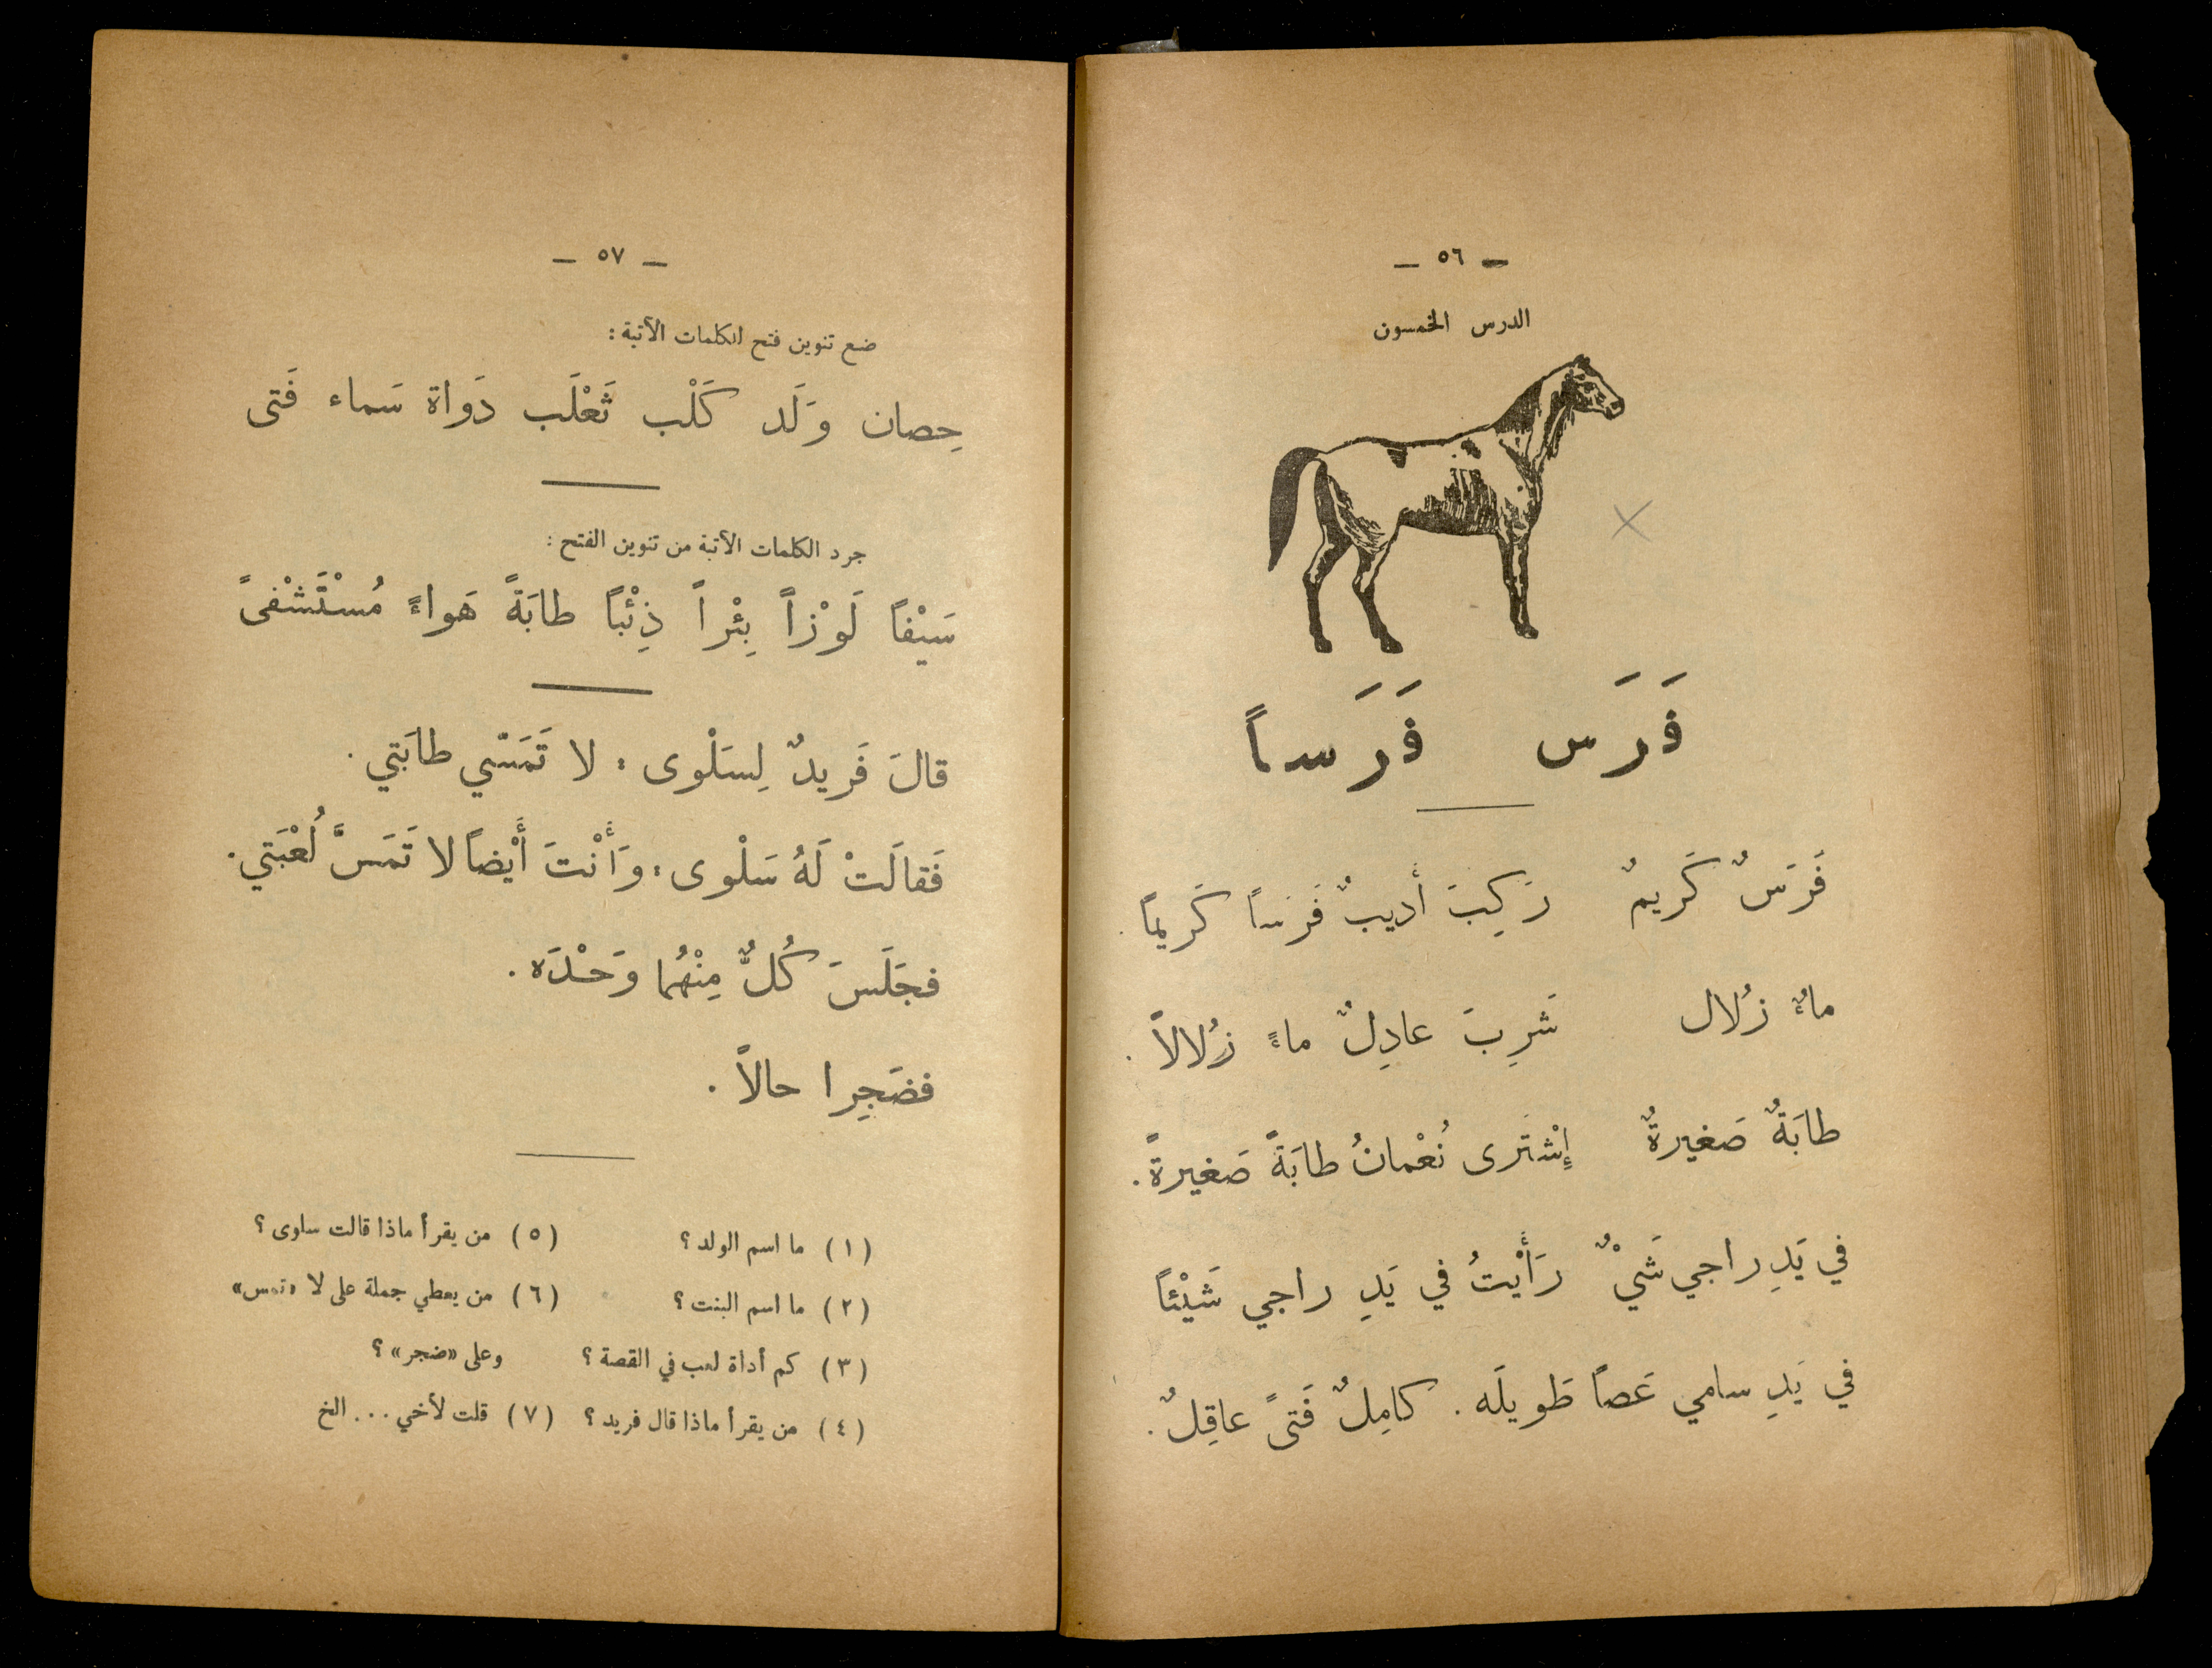 — ٥٦ —
الدرس الخمسون
فَرَس فَرَساً
فَرَسٌ كَريمٌ رَكِبَ أَديبٌ فَرَساً كَريماً.
ماءٌ زُلال شَرِبَ عادِلٌ ماءً زُلالاً.
طابَةٌ صَغيرةٌ إِشْتَرى نُعْمانُ طابَةً صَغيرةً.
في يَدِ راجي شَيْءٌ رَأَيْتُ في يَدِ راجي شَيْئاً
في يَدِ سامي عَصاً طَويلَه. كامِلٌ فَتىً عاقِلٌ.
— ٥٧ —
ضع تنوين فتح الكلمات الآتية :
حِصان وَلَد كَلْب ثَعْلَب دَواة سَماء فَتى
جرد الكلمات الآتية من تنوين الفتح :
سَيْفاً لَوْزاً بِئْراً ذِئْباً طابَةً هَواءً مُسْتَشْفىً
قالَ فَريدٌ لِسَلْوى : لا تَمَسّي طابَتي.
فَقالَتْ لَهُ سَلْوى : وَأَنْتَ أَيْضاً لا تَمَسَّ لُعْبَتي.
فجَلَسَ كُلٌّ مِنْهُما وَحْدَه.
فضَجِرا حالاً.
(١) ما اسم الولد ؟
(٢) ما اسم البنت ؟
(٣) كم أداة لعب في القصة ؟
(٤) من يقرأ ماذا قال فريد ؟
(٥) من يقرأ ماذا قالت سلوى ؟
(٦) من يعطي جملة على لا «تمس»
وعلى «ضجر» ؟
(٧) قلت لأخي ... الخ